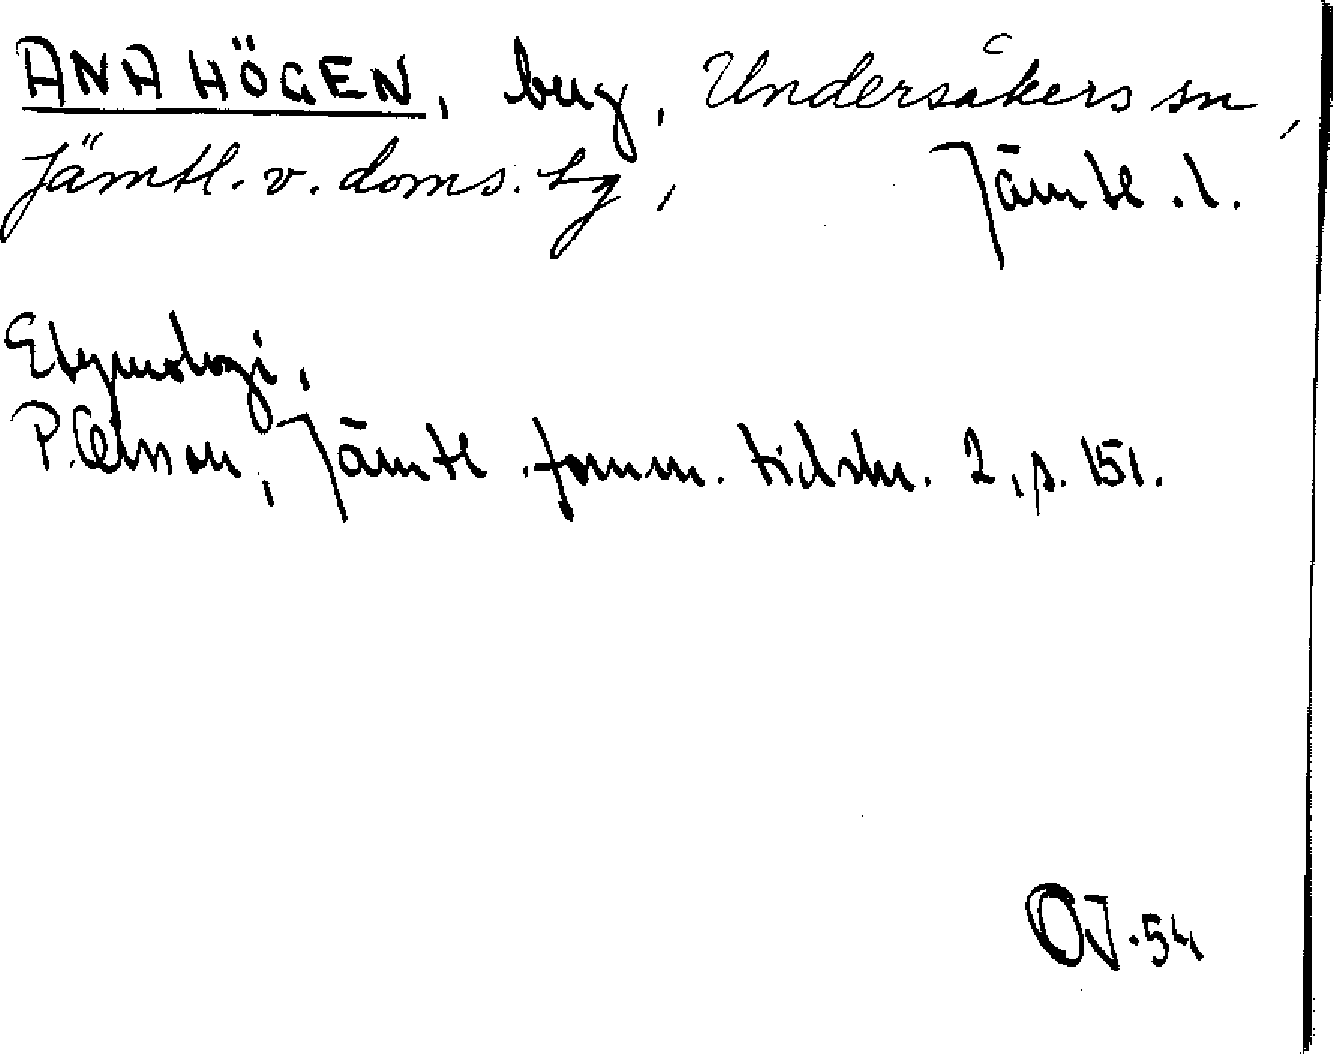 ANAHÖGEN, berg, Undersåkers sn,
Jämtl. v. doms. tg, Jämtl. l.
Etymologi.
P. Olsson, Jämtl. fornm. tidskr. 2, s. 151.
OJ. 54